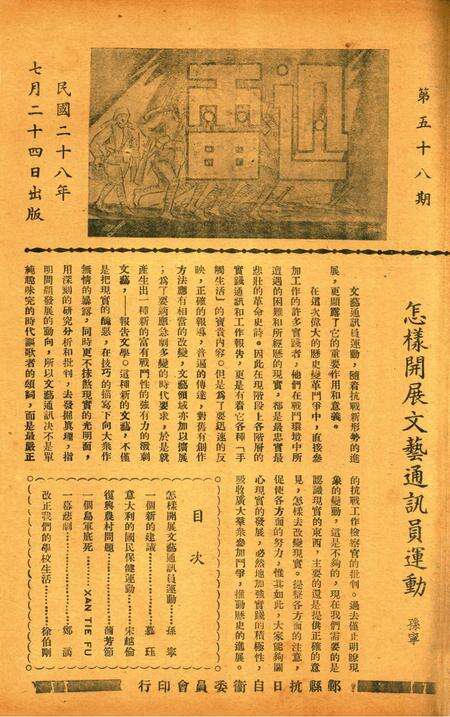 第五十八期
迅雷
民國二十八年
七月二十四日出版
怎樣開展文藝通訊員運動
孫寧
文藝通訊員運動，隨着抗戰新形勢的進
展，更顯露了它的重要作用和意義。
在這次偉大的歷史變革鬥爭中，直接參
加工作的許多實踐者，他們在戰鬥環境中所
遭遇的困難和所經歷的現實，都是最忠實最
悲壯的革命史詩。因此在現階段上各階層的
實踐通訊和工作報告，更是有着它各種「手
觸生活」的寶貴內容。但是爲了要迅速的反
映，正確的報導，普遍的傳達，對舊有創作
方法應有相當的改變，文藝領域亦加以擴展
；爲了要適應急劇多變的時代要求，於是就
產生出一種新的富有戰鬥性的強有力的潑剌
文藝，——報告文學。這種新的文藝，不僅
是把現實的醜惡，在技巧的描寫下向大衆作
無情的暴露，同時更不抹煞現實的光明面，
用深刻的研究分析和批判，去發掘眞理，指
明問題發展的動向，所以文藝通訊決不是單
純趣味完的時代謳歌者的頌詞，而是最嚴正
的抗戰工作檢察官的批判。過去僅止明瞭現
象的變動，這是不夠的，現在我們需要的是
認識現實的東西，主要的還是提供正確的意
見，怎樣去改變現實。提擧各方面的注意，
促使各方面的努力，惟其如此，大家能夠關
心現實的發展，必然地加強實踐的積極性，
吸收廣大羣衆參加鬥爭，推動歷史的進展。
目次
怎樣開展文藝通訊員運動……孫寧
一個新的建議……慕珏
意大利的國民保健運動……宋越倫
復興農村問題……蒲芳節
一個島軍底死……XAN TIE FU
一幕悲劇……鄭滿
改正我們的學校生活……徐伯剛
鄞縣抗日自衞委員會印行